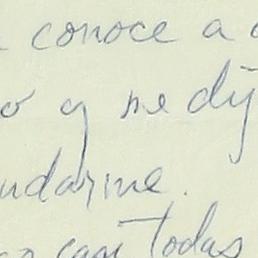 conoce a
y me dij
udarme.
casi todas